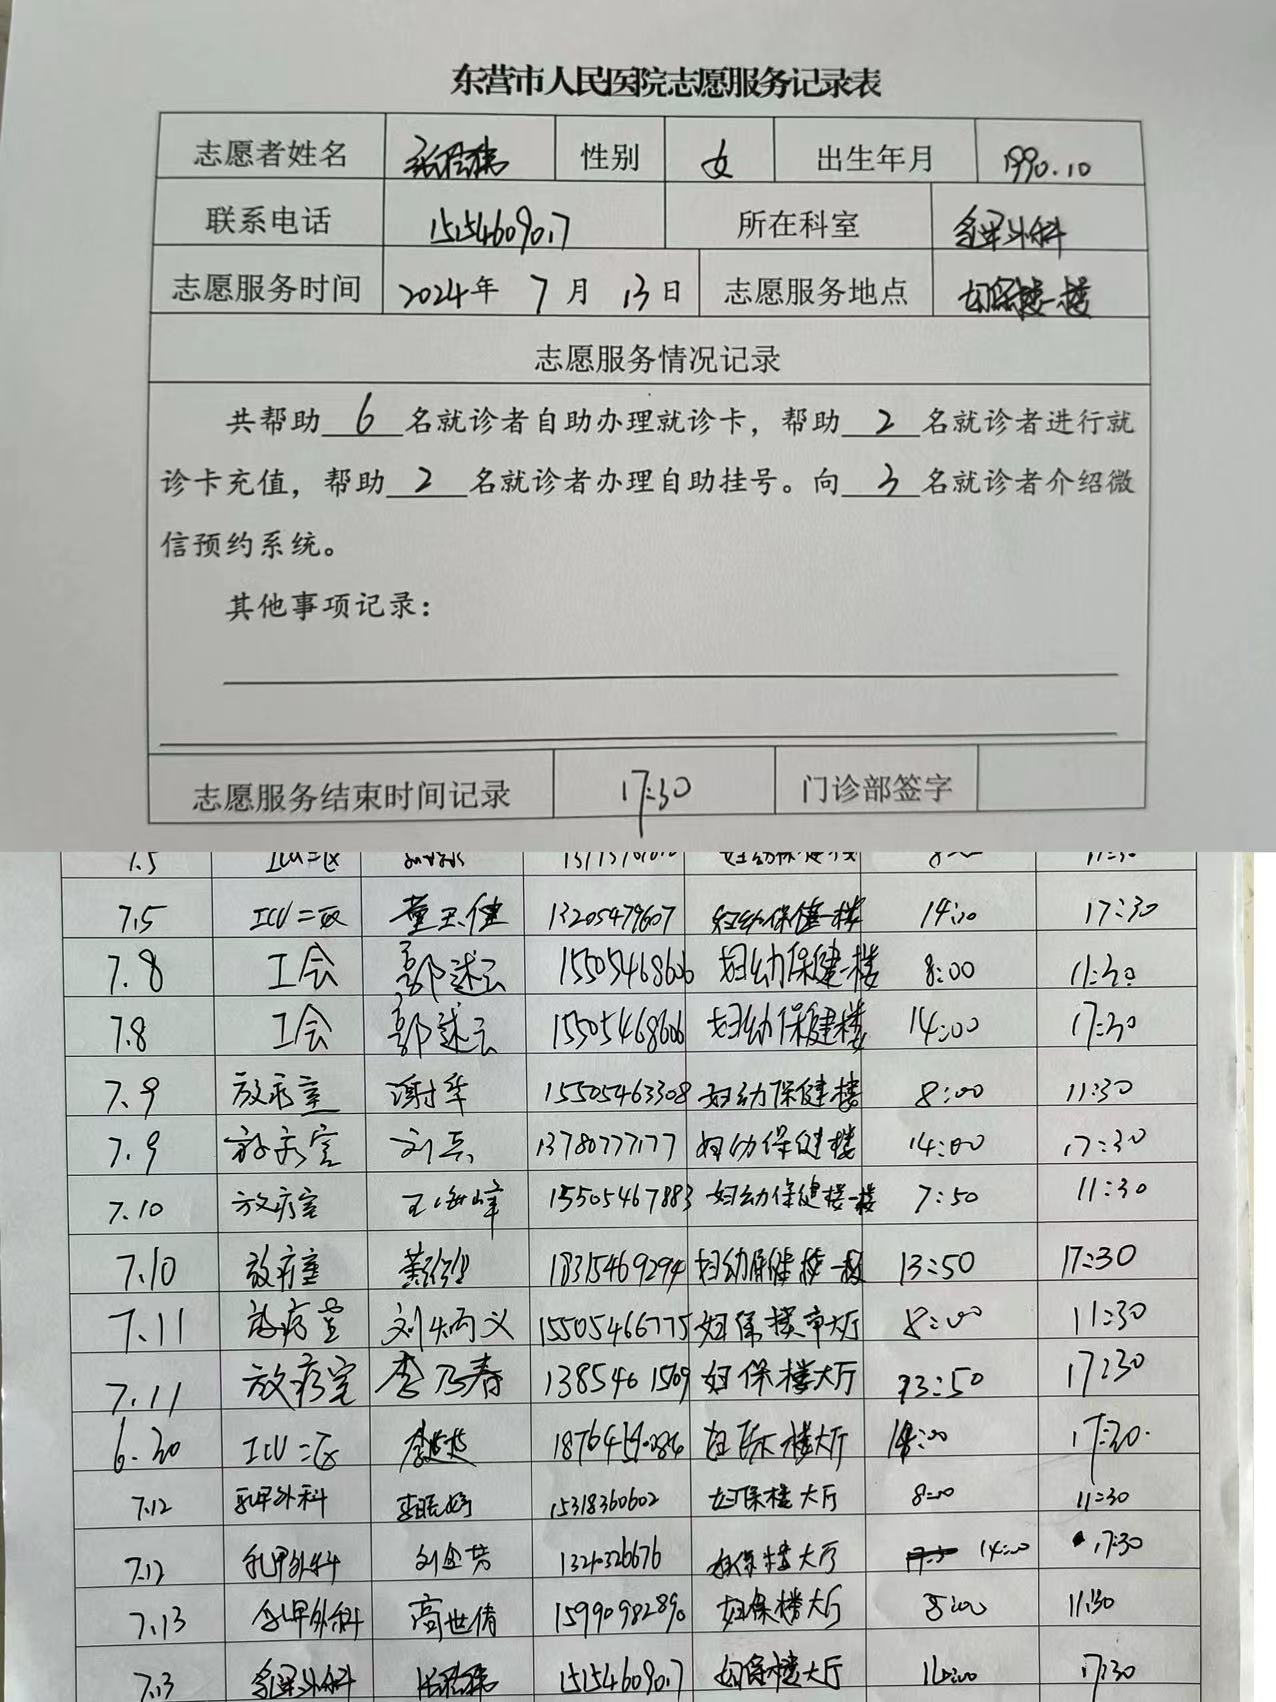 东营市人民医院志愿服务记录表
志愿者姓名 性别 女 出生年月 1990.10
联系电话 15154609017 所在科室 乳甲外科
志愿服务时间 2024年 7月 13日 志愿服务地点 妇保楼一楼
志愿服务情况记录
共帮助 6 名就诊者自助办理就诊卡，帮助 2 名就诊者进行就
诊卡充值，帮助 2 名就诊者办理自助挂号。向 3 名就诊者介绍微
信预约系统。
其他事项记录：
志愿服务结束时间记录 17:30 门诊部签字
7.5 ICU二区 8:00 11:30
7.5 ICU二区 董玉健 13205479607 妇幼保健一楼 14:00 17:30
7.8 工会 郭述云 15505468606 妇幼保健一楼 8:00 11:30
7.8 工会 郭述云 15505468606 妇幼保健楼 14:00 17:30
7.9 放疗室 谢华 15505463308 妇幼保健楼 8:00 11:30
7.9 放疗室 刘兵 13780777177 妇幼保健楼 14:00 17:30
7.10 放疗室 王海峰 15505467883 妇幼保健楼一楼 7:50 11:30
7.10 放疗室 18315469294 妇幼保健楼一楼 13:50 17:30
7.11 放疗室 刘炳义 15505466775 妇保楼大厅 8:00 11:30
7.11 放疗室 李乃春 1385461509 妇保楼大厅 13:50 17:30
6.30 ICU二区 妇保楼大厅 14:00 17:30.
7.12 乳甲外科 15318360602 妇保楼大厅 8:00 11:30
7.12 乳甲外科 刘金芳 妇保楼大厅 14:00 17:30
7.13 乳甲外科 高世倩 15990982890 妇保楼大厅 8:00 11:30
7.13 乳甲外科 15154609017 妇保楼大厅 14:00 17:30